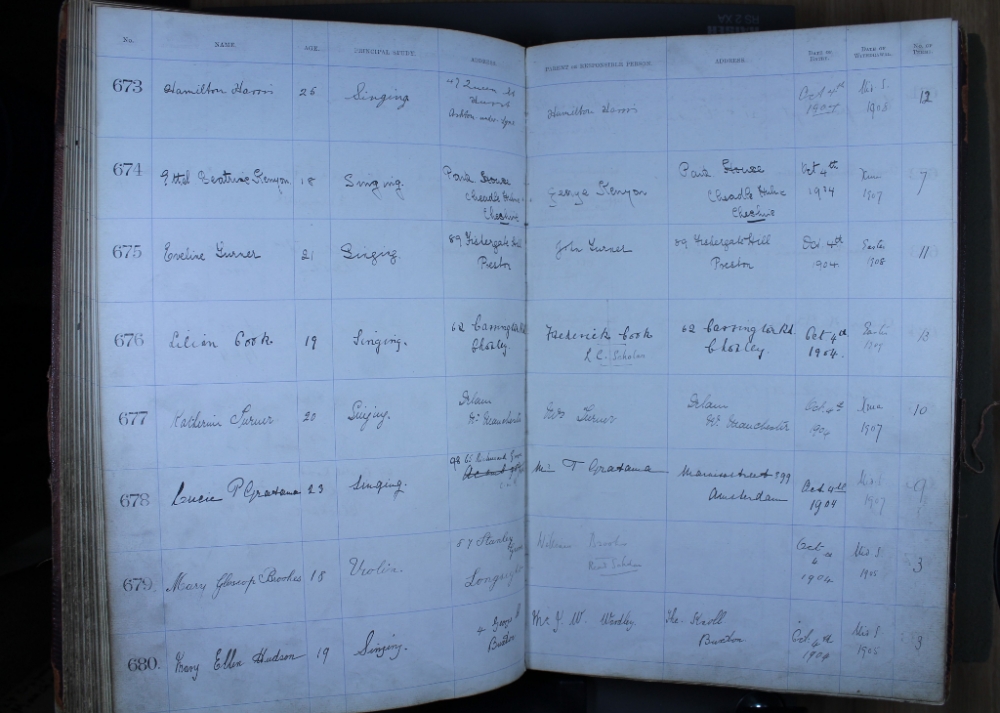 No. NAME. AGE. PRINCIPAL STUDY. ADDRESS. PARENT OR RESPONSIBLE PERSON. ADDRESS. DATE OF ENTRY. DATE OF WITHDRAWAL. No. OF TERMS.
673 Hamilton Harris 26 Singing 47 Queen St Hamilton Harris Oct 4th Mis S. 12
Hurst 1904 1908
Ashton
674 Ethel Beatrice Kenyon 18 Singing. Park House George Kenyon Park House Oct 4th Xmas 7
Cheadle Hulme Cheadle Hulme 1904 1907
Cheshire Cheshire
675 Eveline Turner 21 Singing 89 Fishergate Hill John Turner 89 Fishergate Hill Oct. 4th Easter 11
Preston Preston 1904 1908
676 Lilian Cook 19 Singing. 62 Carrington Rd Frederick Cook 62 Carrington Rd. Oct 4th 13
Chorley. L.C. Scholar Chorley. 1904.
677 Katherine Turner 20 Singing. Irlam Turner Irlam Oct 4th Xmas 10
Nr Manchester Nr Manchester 1904 1907
678 Lucie P Gratama 23 Singing. 98 T Gratama 199 Oct 4th 9
Amsterdam 1904 1907
679. Mary Glossop Brookes 18 Violin. 57 Stanley Grove William Brookes Oct Mis S 3
Longsight 1904 1905
680. Mary Ellen Hudson 19 Singing. George St Mr J. W. Wardley The Knoll Oct. 4th Mis S 3
Buxton Buxton 1904 1905